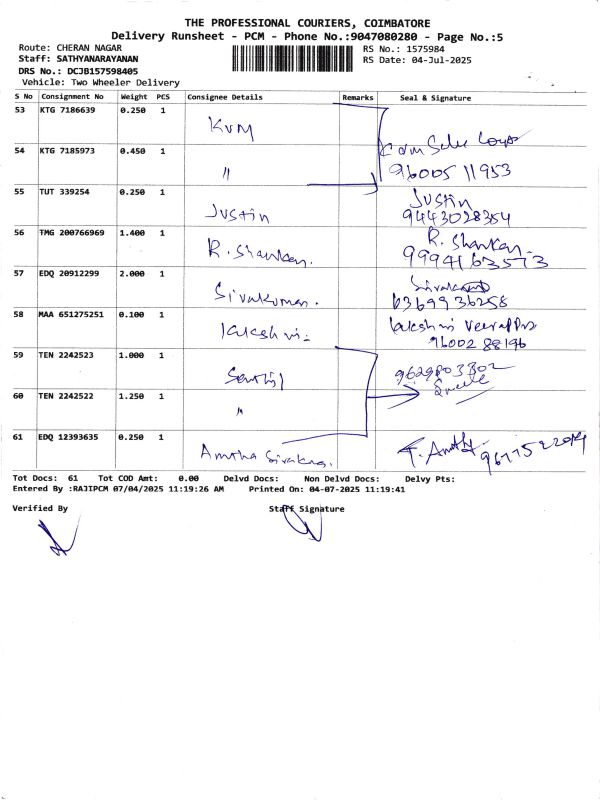 THE PROFESSIONAL COURIERS, COIMBATORE
Delivery Runsheet - PCM - Phone No.:9047080280 - Page No.:5
Route: CHERAN NAGAR RS No.: 1575984
Staff: SATHYANARAYANAN RS Date: 04-Jul-2025
DRS No.: DCJB157598405
Vehicle: Two Wheeler Delivery
S No Consignment No Weight PCS Consignee Details Remarks Seal & Signature
53 KTG 7186639 0.250 1 KVM
54 KTG 7185973 0.450 1 " 96005 11953
55 TUT 339254 0.250 1 Justin Justin 9443028354
56 TMG 200766969 1.400 1 R. Shankar. R. Shankar. 9994163573
57 EDQ 20912299 2.000 1 Sivakumar. 6369936258
58 MAA 651275251 0.100 1 lakshmi 96002 88196
59 TEN 2242523 1.000 1 Senthil 9629803302
60 TEN 2242522 1.250 1 "
61 EDQ 12393635 0.250 1 Amtha
Tot Docs: 61 Tot COD Amt: 0.00 Delvd Docs: Non Delvd Docs: Delvy Pts:
Entered By :RAJIPCM 07/04/2025 11:19:26 AM Printed On: 04-07-2025 11:19:41
Verified By Staff Signature